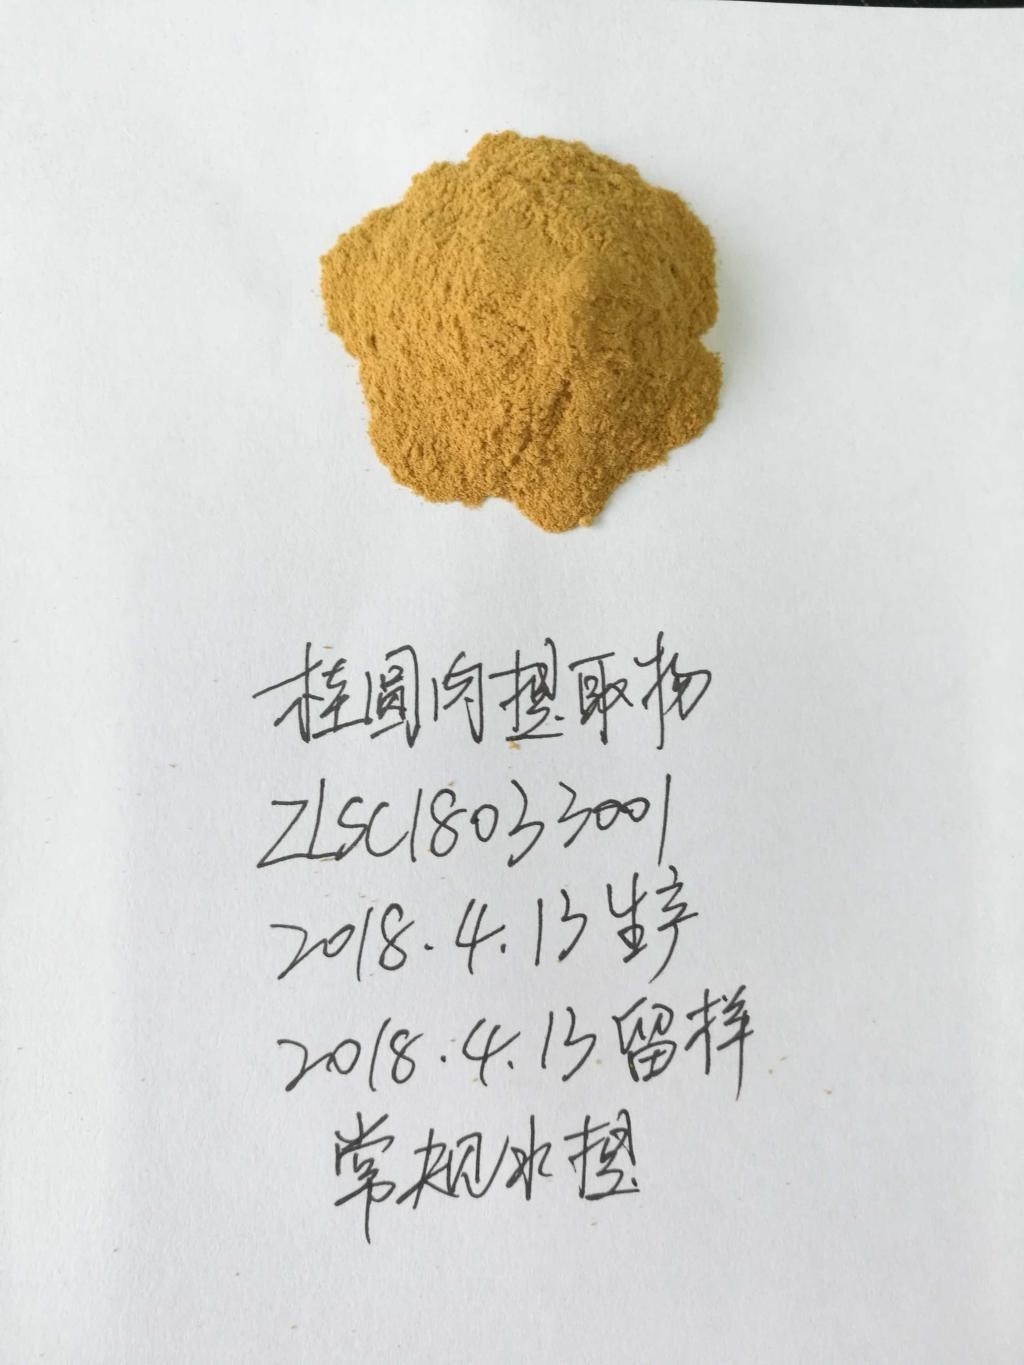 桂圆肉提取物
ZLSC18033001
2018.4.13生产
2018.4.13留样
常规水提